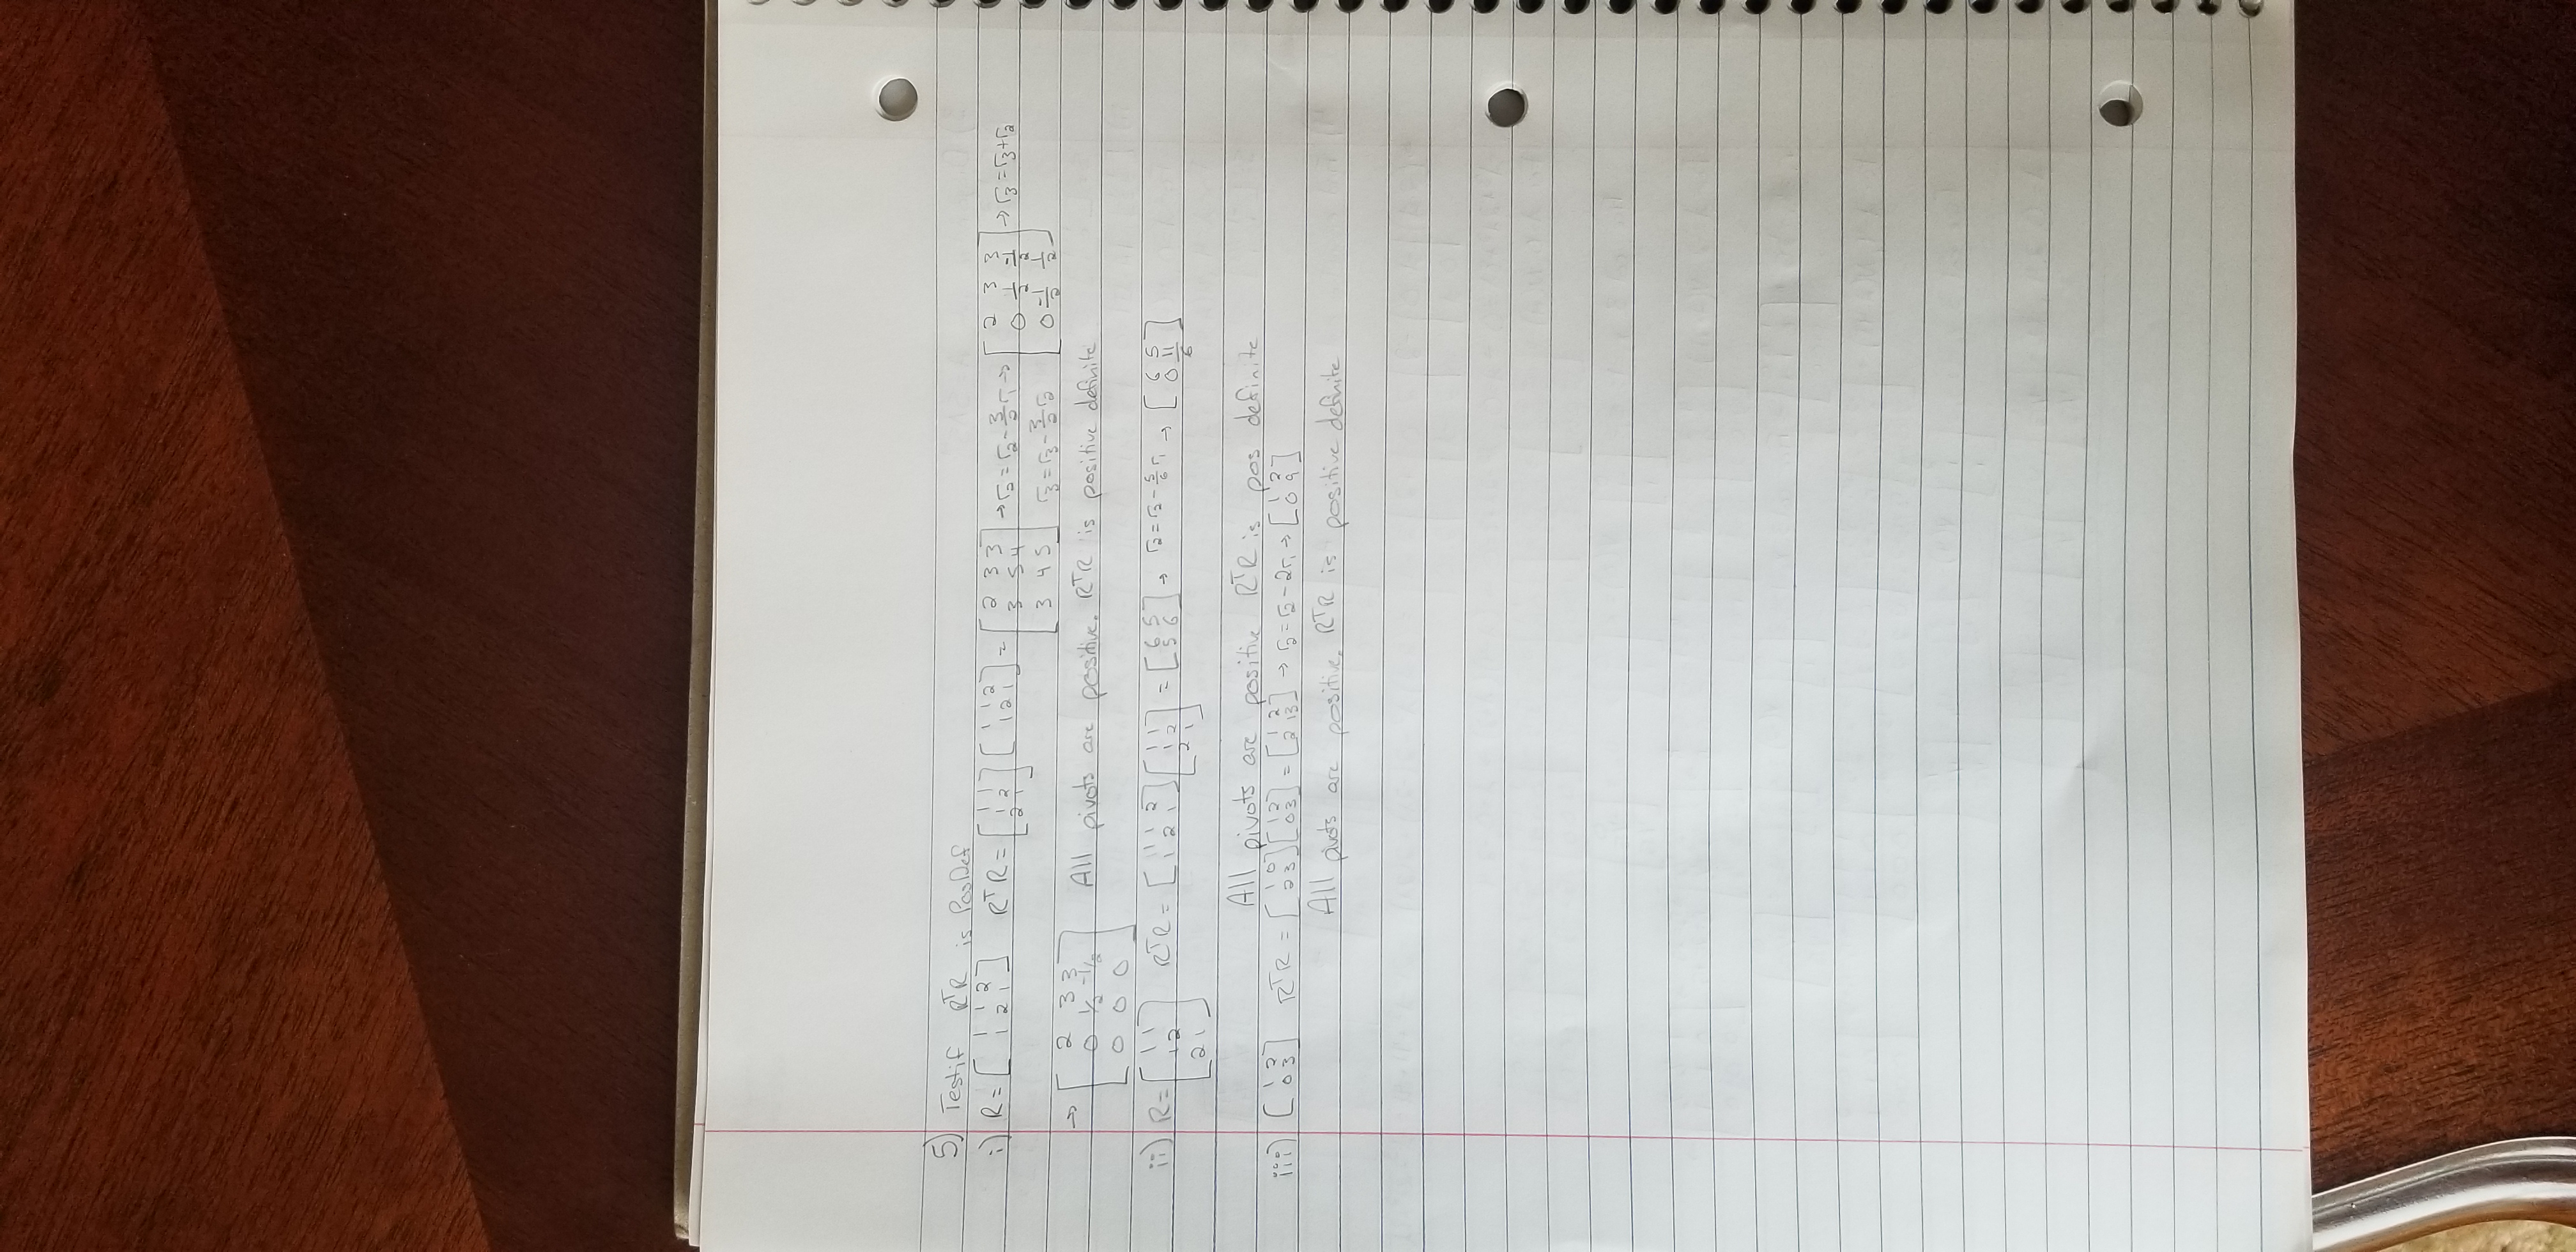 5) Test if RᵀR is PosDef
i) R = [1 1 2; 1 2 1] RᵀR = [1 1; 1 2; 2 1] [1 1 2; 1 2 1] = [2 3 3; 3 5 4; 3 4 5] → r₂ = r₂ - 3/2 r₁ → r₃ = r₃ - 3/2 r₂ [2 3 3; 0 1/2 -1/2; 0 -1/2 1/2] → r₃ = r₃ + r₂
→ [2 3 3; 0 1/2 -1/2; 0 0 0] All pivots are positive. RᵀR is positive definite
ii) R = [1 1; 1 2; 2 1] RᵀR = [1 1 2; 1 2 1] [1 1; 1 2; 2 1] = [6 5; 5 6] → r₂ = r₂ - 5/6 r₁ → [6 5; 0 11/6]
All pivots are positive RᵀR is pos definite
iii) [1 2; 0 3] RᵀR = [1 0; 2 3] [1 2; 0 3] = [1 2; 2 13] → r₂ = r₂ - 2r₁ → [1 2; 0 9]
All pivots are positive. RᵀR is positive definite